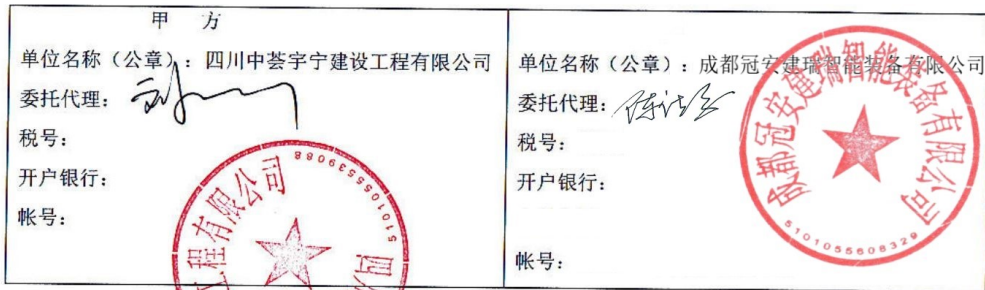 甲 方
单位名称（公章）：四川中荟宇宁建设工程有限公司
委托代理：
税号：
开户银行：
帐号：
工程有限公司
单位名称（公章）：成都冠安建瑞智能装备有限公司
委托代理：
税号：
开户银行：
帐号：
成都冠安建瑞智能装备有限公司
5101055608329